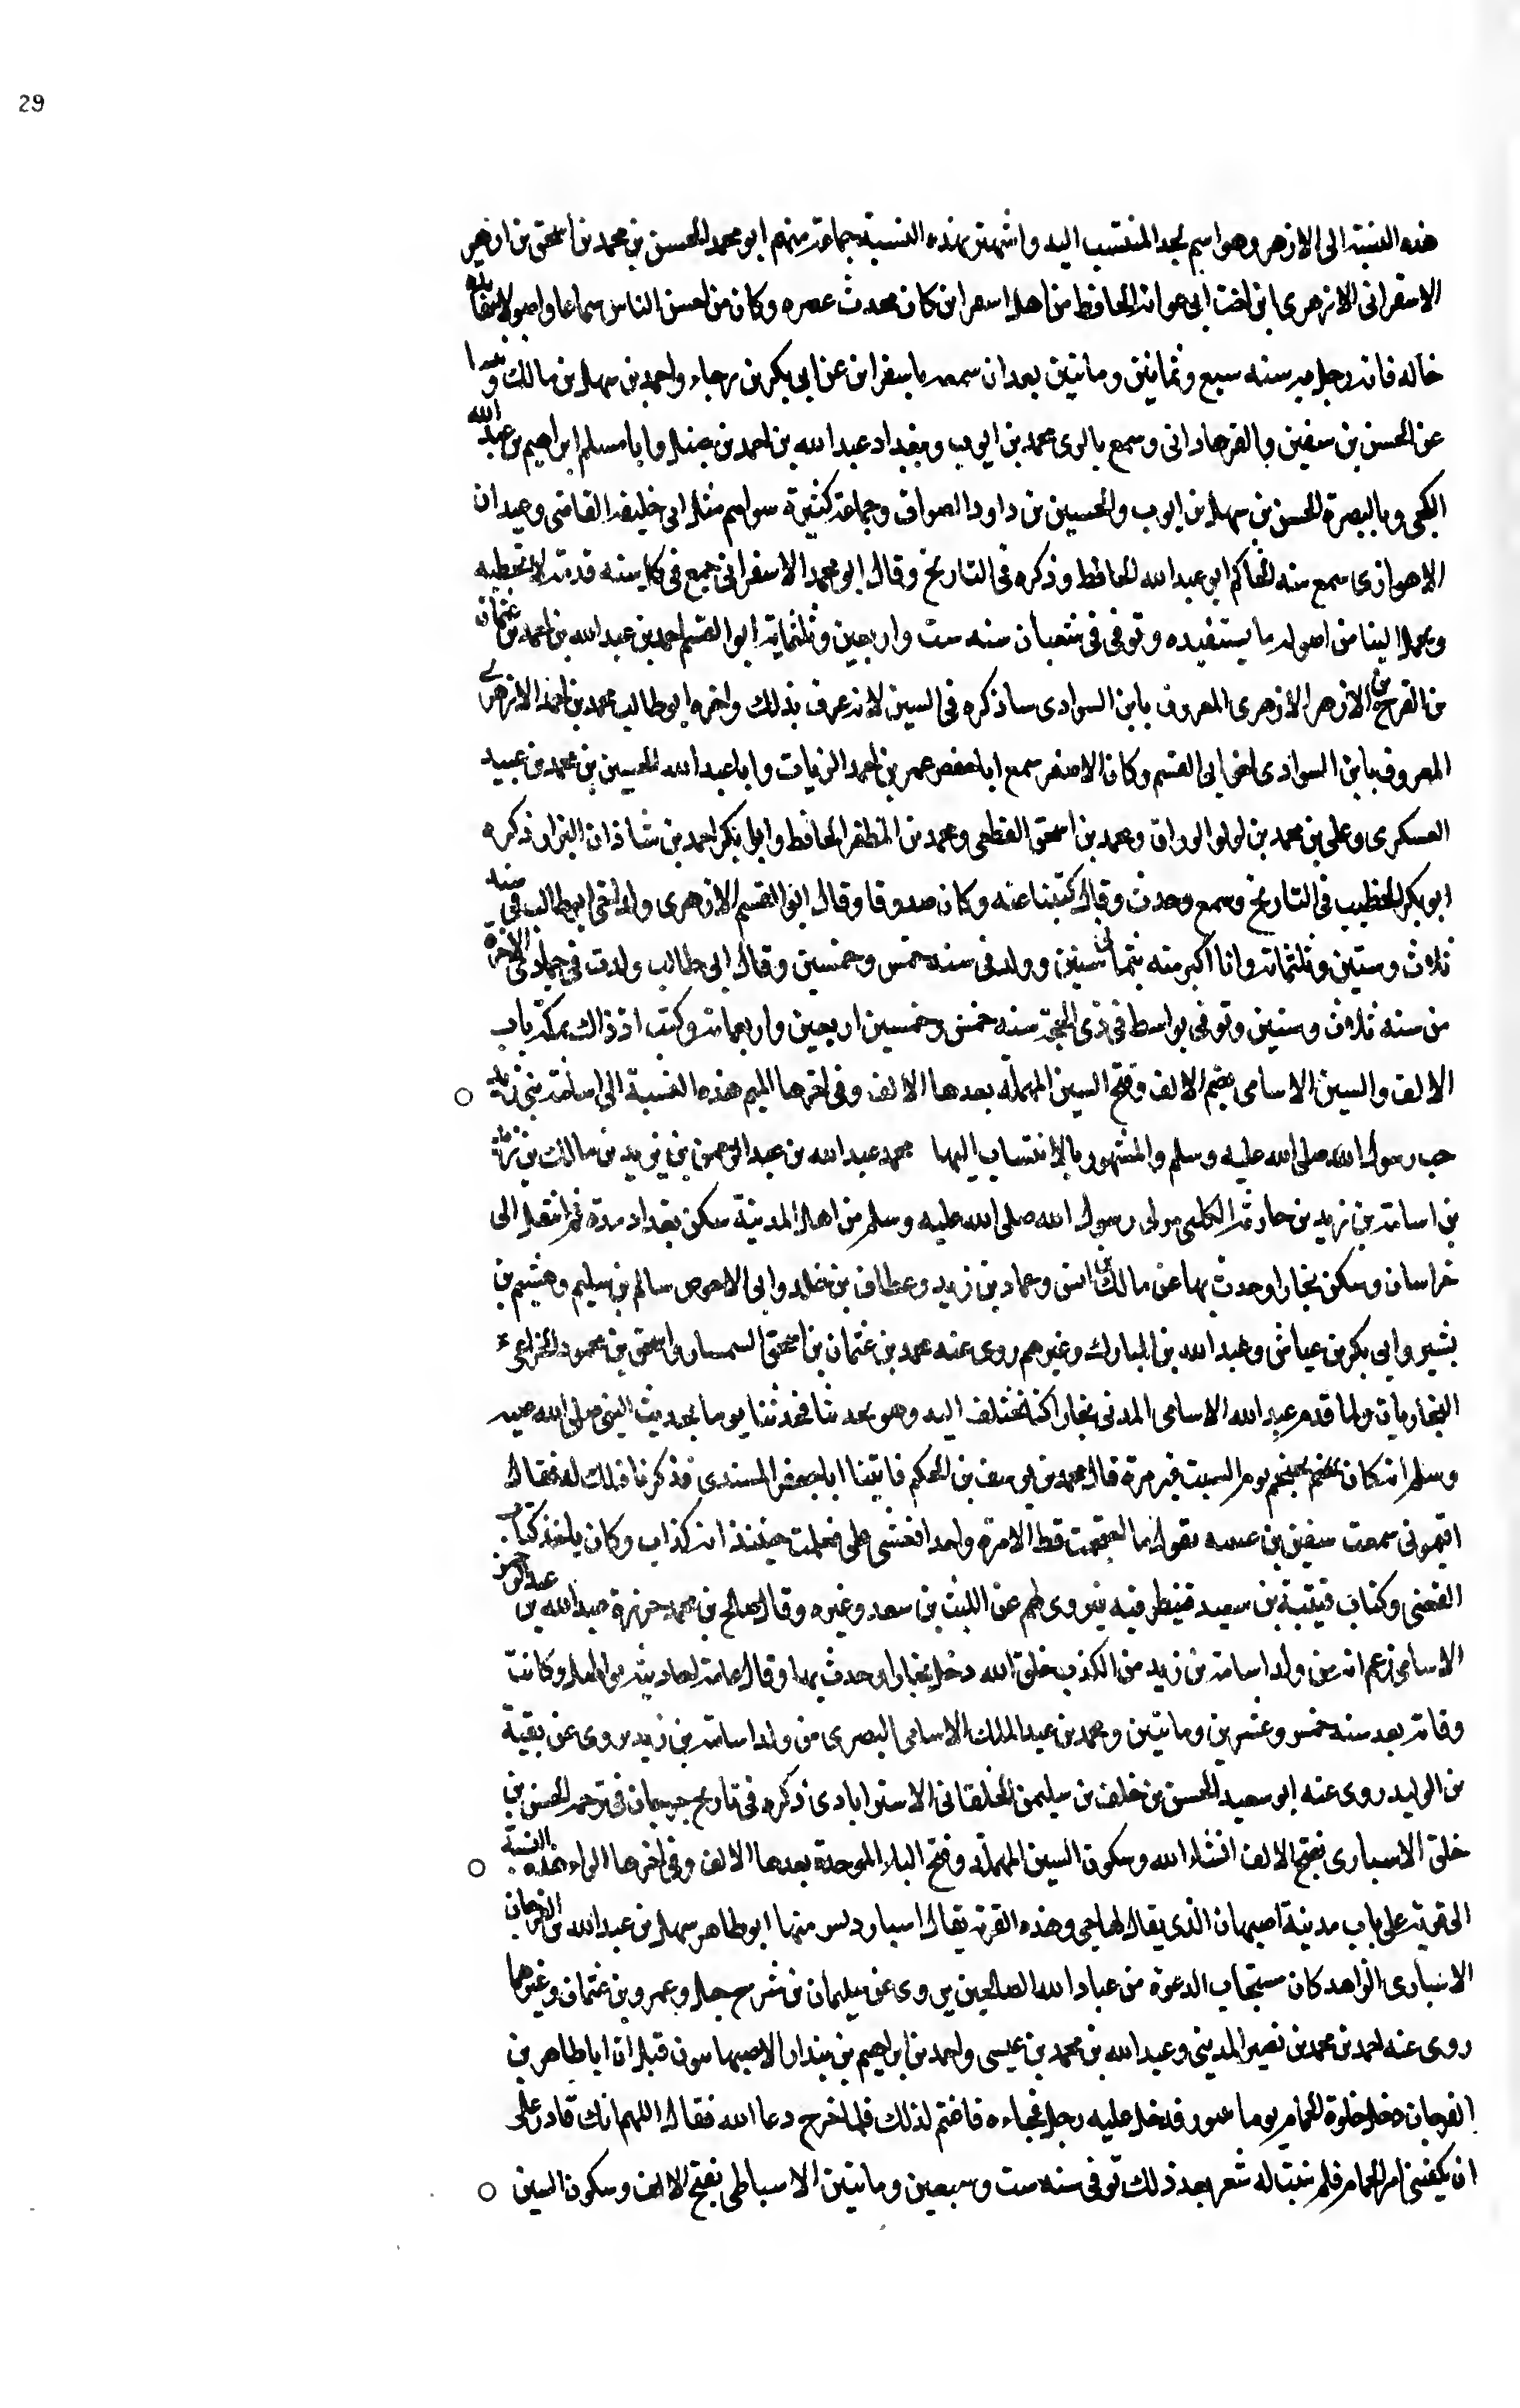 29
هذه النسبة الى الازهر وهو اسم لجد المنتسب اليه واشتهر بهذه النسبة جماعة منهم ابو محمد الحسن بن محمد بن اسحق بن ازهر
الاسفرانى الازهرى ابن اخت ابى عوانة الحافظ من اهل اسفراين كان محدث عصره وكان من احسن الناس سماعا واصولا
خاله فانه رحل به سنه سبع وثمانين ومائتين بعد ان سمعه باسفراين عن ابى بكر بن رجاء واحمد بن سهل بن مالك
عن الحسن بن سفين وبالفرهادانى وسمع بالرى محمد بن ايوب وببغداد عبد الله بن احمد بن حنبل وابا مسلم ابراهيم بن عبد الله
الكجى وبالبصرة الحسن بن سهل بن ايوب والحسين بن داود الصواف وجماعة كثيرة سواهم مثل ابى خليفة القاضى وعبدان
الاهوازى سمع منه الحاكم ابو عبد الله الحافظ وذكره فى التاريخ وقال ابو محمد الاسفرانى جمع فى كل سنه قدمة لا تخطيه
ويحمل الينا من اصوله ما يستفيده وتوفى فى شعبان سنه ست واربعين وثلثماية ابو القسم احمد بن عبد الله بن احمد بن عثمان
بن الفرج بن الازهر الازهرى المعروف بابن السوادى ساذكره فى السين لانه عرف بذلك واخوه ابو طالب محمد بن احمد الازهرى
المعروف بابن السوادى اخى ابى القسم وكان الاصغر سمع ابا حفص عمر بن احمد الزيات وابا عبد الله الحسين بن محمد بن عبيد
العسكرى وعلى بن محمد بن لولو الوراق ومحمد بن اسحق القطيعى ومحمد بن المظفر الحافظ وابا بكر احمد بن شاذان البزاز ذكره
ابو بكر الخطيب فى التاريخ وسمع وحدث وقال كتبنا عنه وكان صدوقا وقال ابو القسم الازهرى ولد اخى ابو طالب فى سنه
ثلاث وستين وثلثماته وانا اكبر منه بثمان سنين وولد فى سنه خمس وخمسين وقال ابى طالب ولدت فى جمادى الاخره
من سنه ثلاث وستين وتوفى بواسط فى ذى الحجة سنه خمس وخمسين اربعين واربعماته وكنت اذ ذاك بمكة باب
الالف والسين الاسامى بضم الالف وفتح السين المهملة بعدها الالف وفى اخرها الميم هذه النسبة الى اسامة بن زيد
حب رسول الله صلى الله عليه وسلم والمشهور بالانتساب اليها محمد عبد الله بن عبد الرحمن بن يزيد بن مالك بن
بن اسامة بن زيد بن حارثة الكلبى مولى رسول الله صلى الله عليه وسلم من اهل المدينة سكن بغداد مدة ثم انتقل الى
خراسان وسكن بخارا وحدث بها عن مالك بن انس وحماد بن زيد وعطاف بن خالد وابى الاحوص سالم بن سليم وهشيم بن
بشير وابى بكر بن عياش وعبد الله بن المبارك وغيرهم روى عنه محمد بن عثمان بن اسحق السمسار واسحق بن محمود الخزاعى
البخاريان ولما قدم عبد الله الاسامى المدنى بخارا كنا نختلف اليه وهو يحدثنا فحدثنا يوما بحديث النبى صلى الله عليه
وسلم انه كان يحتجم يوم السبت غير مرة قال محمد بن يوسف بن الحكم فاتينا ابا جعفر المسندى فذكرنا ذلك له فقال
اقيمونى سمعت سفين بن عيينه يقول ما احتجمت قط الا مرة واحدا فغشى على فعلمت حينئذ انه كذاب وكان ياخذ كتاب
القعنبى وكتاب قتيبة بن سعيد فينظر فيه يروى لهم عن الليث بن سعد وغيره وقال صالح بن محمد جزرة عبد الله بن عبد الرحمن
الاسامى زعم انه من ولد اسامة بن زيد من اكذب خلق الله دخل بخارا وحدث بها وقال عامة احاديثه بواطيل وكانت
وفاته بعد سنه خمس وعشرين ومائتين ومحمد بن عبد الملك الاسامى البصرى من ولد اسامة بن زيد يروى عن بقية
بن الوليد روى عنه ابو سعيد الحسن بن خلف بن سليمن الخلقانى الاستراباذى ذكره فى تاريخ جرجان فى ترجمة الحسن بن
خلق الاسبارى بفتح الالف انشاء الله وسكون السين المهملة وفتح الباء الموحدة بعدها الالف وفى اخرها الراء هذه النسبة
الى قرية على باب مدينة اصبهان الذى يقال لها جى وهذه القرية يقال اسبارديس منها ابو طاهر سهل بن عبد الله بن الفرخان
الاسبارى الزاهد كان مستجاب الدعوة من عباد الله الصالحين يروى عن سليمان بن شرحبيل وعمرو بن عثمان وغيرهما
روى عنه احمد بن محمد بن نصير المدينى وعبد الله بن محمد بن عيسى واحمد بن ابراهيم بن بندار الاصبهانيون قيل ان ابا طاهر بن
الفرخان دخل خلوة الحمام يوما فدخل عليه رجل فجاءه فاغتم لذلك فلما خرج دعا الله فقال اللهم انك قادر على
ان تكفينى امر الحمام فلم تنبت له شعر بعد ذلك توفى سنه ست وسبعين ومائتين الاسباطى بفتح الالف وسكون السين